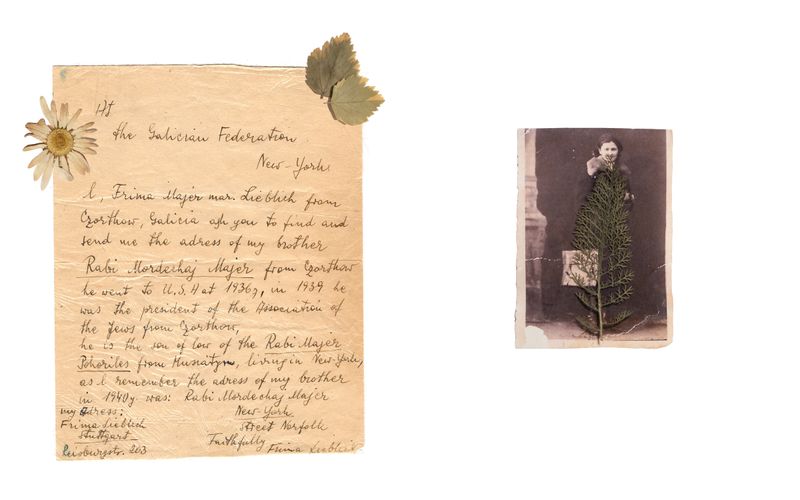 At
the Galician Federation
New-York
I, Frima Majer mar. Lieblich from
Czorthow, Galicia ask you to find and
send me the adress of my brother
Rabi Mordechaj Majer from Czorthow
he went to U.S.A at 1936y, in 1939 he
was the president of the Association of
the Jews from Czorthow,
he is the son of low of the Rabi Majer
Pohoriles from Husiatyn, living in New-York,
as I remember the adress of my brother
in 1940y. was: Rabi Mordechaj Majer
my adress: New York
Frima Lieblich Street Norfolk
Stuttgart Faithfully
Reisburgstr. 203 Frima Lieblich